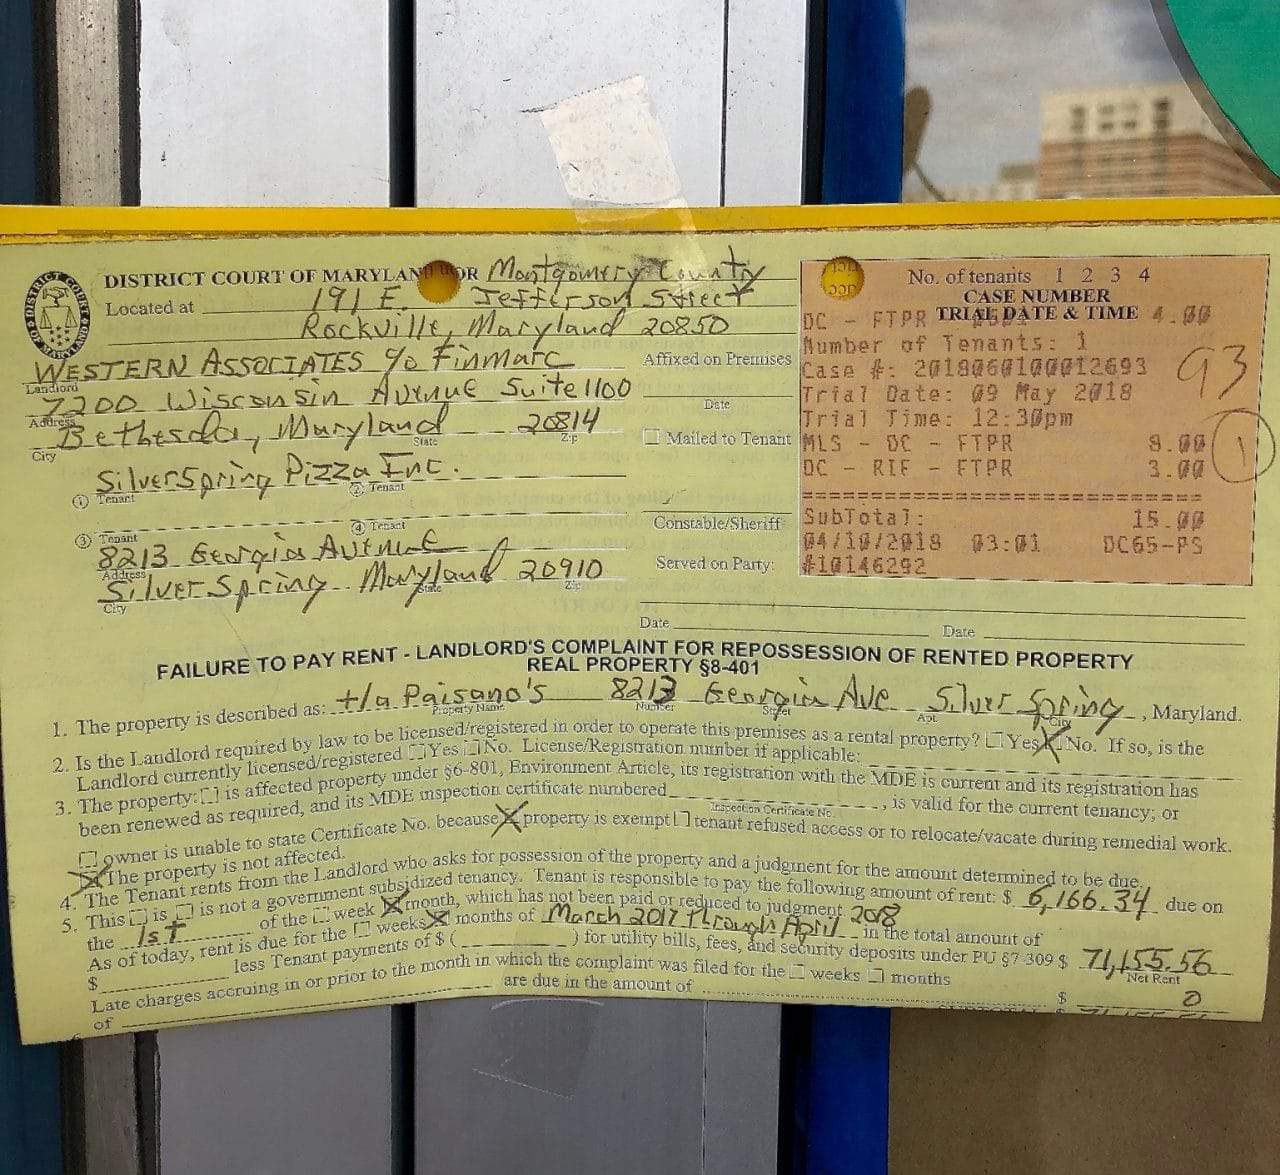 DISTRICT COURT OF MARYLAND FOR Montgomery County
Located at 191 E. Jefferson Street
Rockville, Maryland 20850
WESTERN ASSOCIATES c/o Finmarc
Landlord
7200 Wisconsin Avenue Suite 1100
Address
Bethesda, Maryland 20814
City State Zip
SilverSpring Pizza Inc.
① Tenant ② Tenant
③ Tenant ④ Tenant
8213 Georgia Avenue
Address
Silver Spring Maryland 20910
City State Zip
Affixed on Premises
Date
Mailed to Tenant
Constable/Sheriff
Served on Party:
Date Date
No. of tenants 1 2 3 4
CASE NUMBER
TRIAL DATE & TIME
DC - FTPR 4.00
Number of Tenants: 1
Case #: 201806010012693
Trial Date: 09 May 2018
Trial Time: 12:30pm
MLS - DC - FTPR 8.00
DC - RIF - FTPR 3.00
SubTotal: 15.00
04/10/2018 03:01 DC65-PS
#10146292
93
1
FAILURE TO PAY RENT - LANDLORD'S COMPLAINT FOR REPOSSESSION OF RENTED PROPERTY
REAL PROPERTY §8-401
1. The property is described as: t/a Paisano's 8213 Georgia Ave Silver Spring, Maryland.
Property Name Number Street Apt. City
2. Is the Landlord required by law to be licensed/registered in order to operate this premises as a rental property? Yes No. If so, is the
Landlord currently licensed/registered Yes No. License/Registration number if applicable:
3. The property: is affected property under §6-801, Environment Article, its registration with the MDE is current and its registration has
been renewed as required, and its MDE inspection certificate numbered , is valid for the current tenancy; or
Inspection Certificate No.
owner is unable to state Certificate No. because property is exempt tenant refused access or to relocate/vacate during remedial work.
The property is not affected.
4. The Tenant rents from the Landlord who asks for possession of the property and a judgment for the amount determined to be due.
5. This is is not a government subsidized tenancy. Tenant is responsible to pay the following amount of rent: $ 6,166.34 due on
the 1st of the week month, which has not been paid or reduced to judgment.
As of today, rent is due for the weeks months of March 2017 through April 2018 in the total amount of
$ less Tenant payments of $ ( ) for utility bills, fees, and security deposits under PU §7-309 $ 71,155.56
Net Rent
Late charges accruing in or prior to the month in which the complaint was filed for the weeks months
of are due in the amount of $ 0